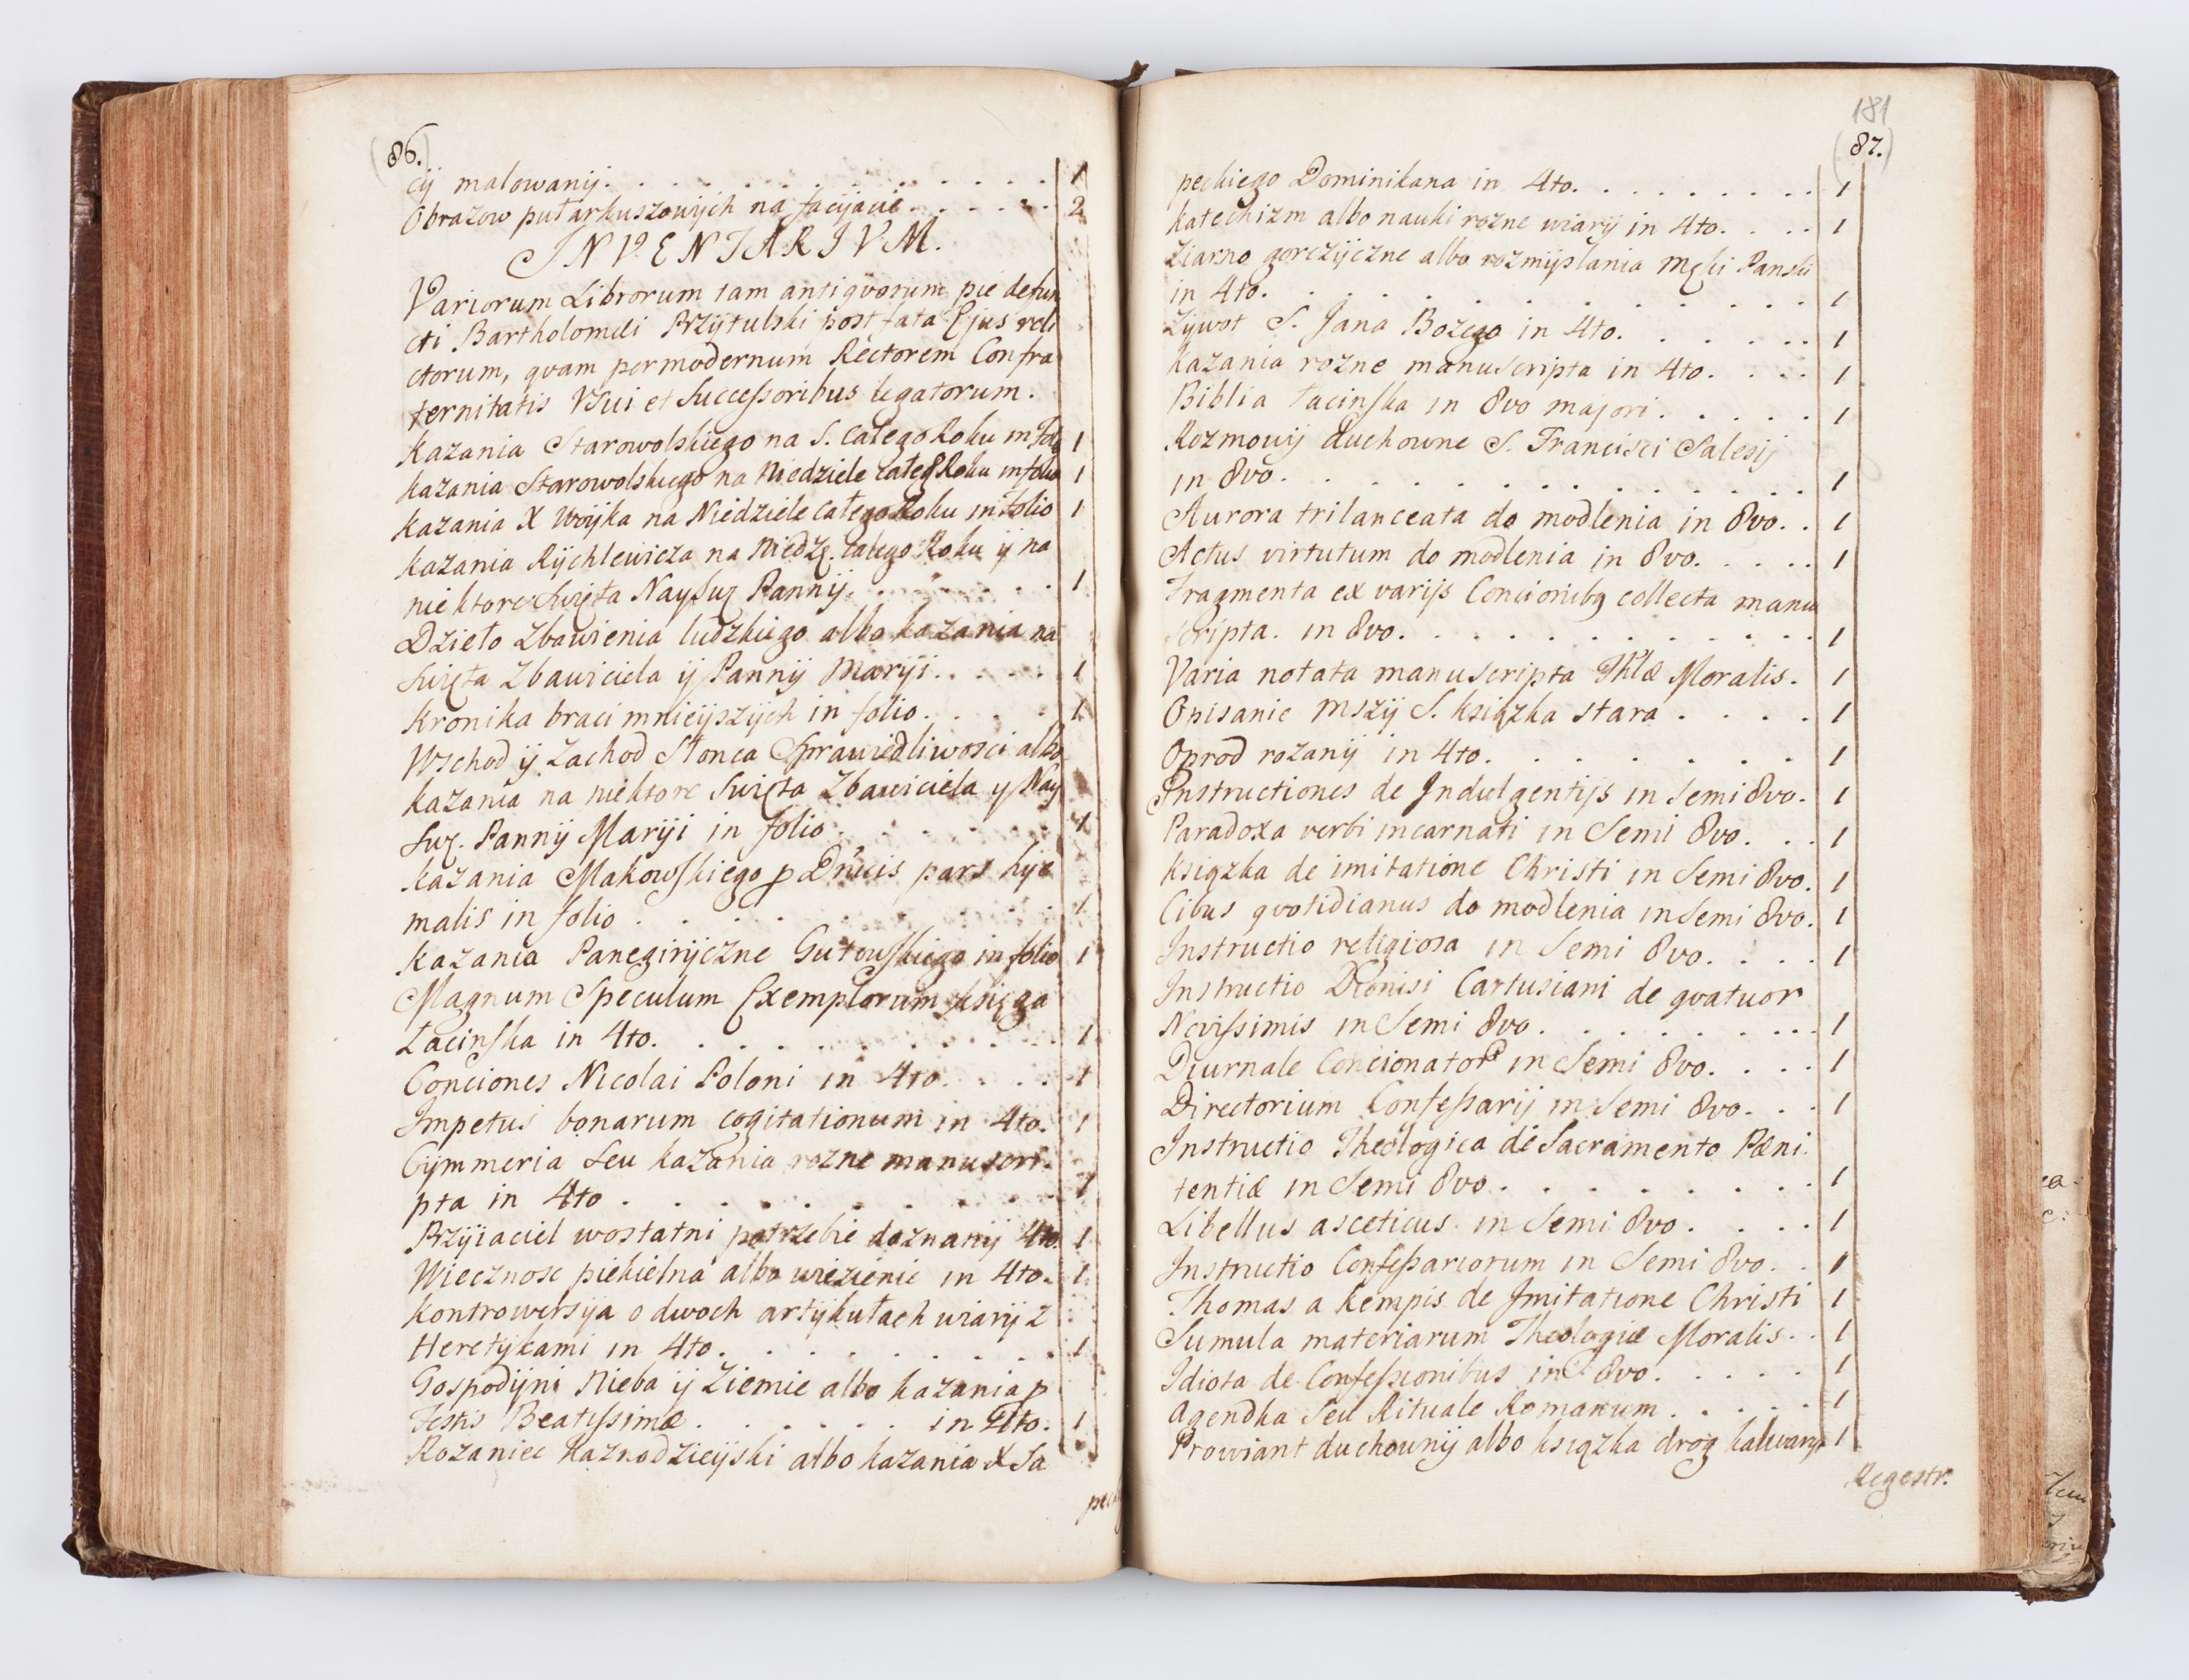 (86.)
cij malowanij. . . . . . . . . . . 1
Obrazow pułarkuszowijch na facijacie . . . . . 2
INVENTARIVM.
Variorum Librorum tam antiqvorum pie defun
cti Bartholomæi Przijtulski post fata Ejus reli
ctorum, qvam per modernum Rectorem Confra
ternitatis Vsui et Successoribus legatorum.
Kazania Starowolskiego na S. całego Roku in folio 1
kazania Starowolskiego na Niedziele całeg Roku in folio 1
kazania X Woijka na Niedziele całego Roku in folio 1
kazania Rijchlewicza na Niedzę. całego Roku ij na
niektore Swięta Nayswę Pannij. . . . . . . 1
Dzieło Zbawienia ludzkiego albo kazania na
Swięta Zbawiciela ij Pannij Maryi. . . . . 1
Kronika braci mnieijszijch in folio. . . . . 1
Wschod ij Zachod Słonca Sprawiedliwosci albo
kazania na niektore Swięta Zbawiciela y Nay
Swę. Pannij Maryi in folio . . . . . . 1
kazania Makowskiego p Dnicis pars hije
malis in folio . . . . . . . . . . 1
Kazania Panegirijczne Gutowskiego in folio 1
Magnum Speculum Exemplorum księga
Łacinska in 4to. . . . . . . . . . 1
Conciones Nicolai Poloni in 4to. . . . . 1
Impetus bonarum cogitationum in 4to. 1
Cijmmeria Seu kazania rozne manuscri.
pta in 4to . . . . . . . . . . 1
Przijiaciel wostatni potrzebie doznanij 4to. 1
Wiecznosc piekielna albo więzienie in 4to. 1
Kontrowersija o dwoch artijkułach wiarij z
Heretijkami in 4to. . . . . . . . . 1
Gospodijni Nieba ij Ziemie albo kazania p
Festis Beatissimæ . . . . . . in 4to. 1
Rozaniec kaznodzieijski albo kazania X Sa
peck
181
(87.)
peckiego Dominikana in 4to. . . . . . . . . 1
Katechizm albo nauki rozne wiarij in 4to. . . . 1
Ziarno gorczijczne albo rozmijslania Męki Panski
in 4to. . . . . . . . . . . . . 1
Zijwot S. Jana Bozego in 4to. . . . . . . 1
kazania rozne manuscripta in 4to. . . . . 1
Biblia Łacinska in 8vo majori. . . . . . 1
Rozmowij duchowne S. Francisci Salesij
in 8vo. . . . . . . . . . . . . 1
Aurora trilanceata do modlenia in 8vo. . 1
Actus virtutum do modlenia in 8vo. . . . . 1
Fragmenta ex varijs Concionibq collecta manu
scripta. in 8vo. . . . . . . . . . . 1
Varia notata manuscripta Thlæ Moralis. 1
Opisanie Mszij S. książka stara . . . . 1
Ogrod rozanij in 4to. . . . . . . . . 1
Instructiones de Indulgentijs in Semi 8vo. 1
Paradoxa verbi incarnati in Semi 8vo. . . 1
książka de imitatione Christi in Semi 8vo. 1
Cibus qvotidianus do modlenia in Semi 8vo. 1
Instructio religiosa in Semi 8vo. . . . . 1
Instructio Dionisi Cartusiani de qvatuor
Novissimis in Semi 8vo. . . . . . . . . 1
Diurnale Concionator in Semi 8vo. . . . 1
Directorium Confessarij in Semi 8vo. . . 1
Instructio Theologica de Sacramento Pæni.
tentiæ in Semi 8vo. . . . . . . . . 1
Libellus asceticus in Semi 8vo. . . . . 1
Instructio Confessariorum in Semi 8vo. . 1
Thomas a Kempis de Imitatione Christi 1
Sumula materiarum Theologiæ Moralis. . 1
Idiota de Confessionibus in 8vo. . . . . . 1
Agendka Seu Rituale Romanum . . . . . 1
Prowiant duchownij albo książka drog kalwaryi 1
Regestr.